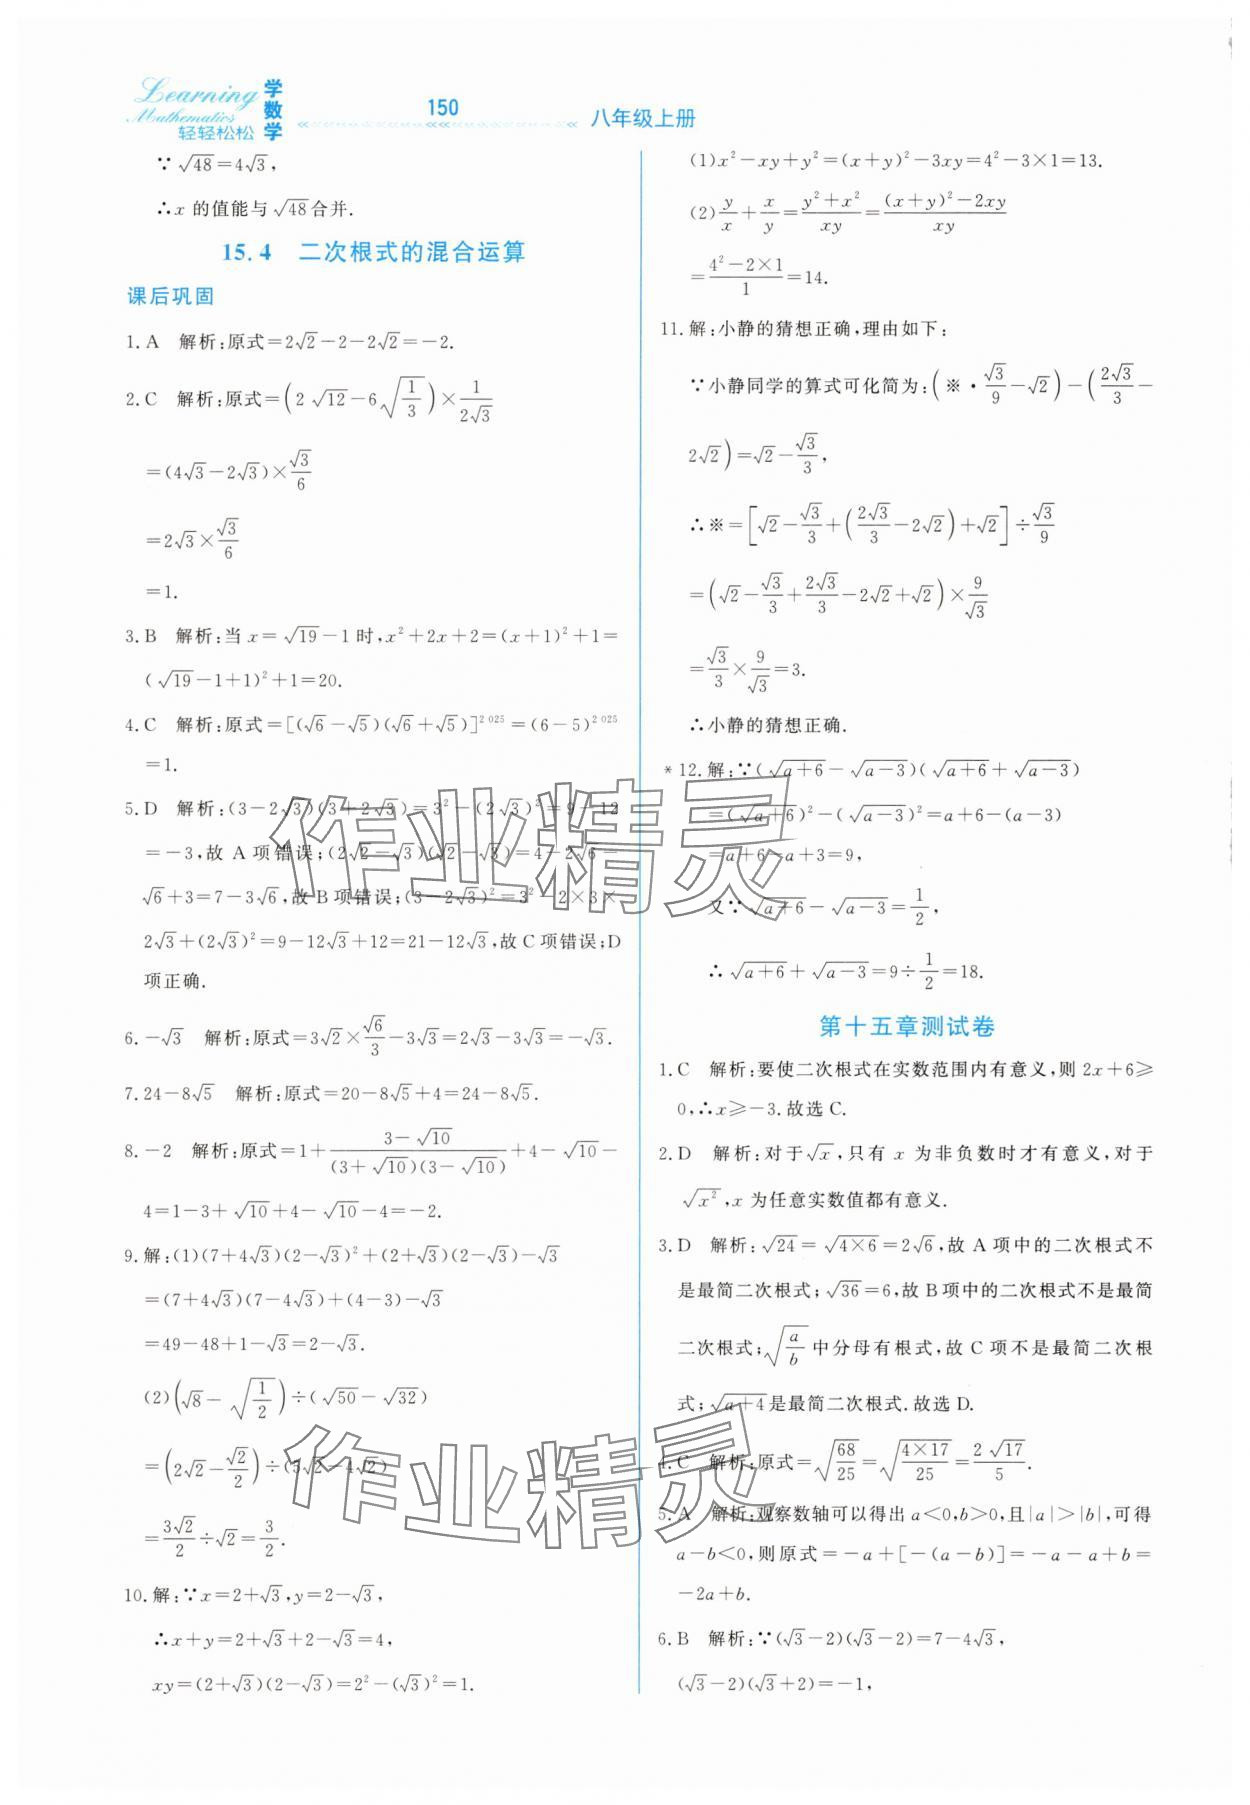 Learning
Mathematics
轻轻松松
学数学
150
八年级上册
∵√48=4√3,
∴x 的值能与√48合并.
15.4 二次根式的混合运算
课后巩固
1.A 解析:原式=2√2-2-2√2=-2.
2.C 解析:原式=(2√12-6√(1/3))×1/(2√3)
=(4√3-2√3)×√3/6
=2√3×√3/6
=1.
3.B 解析:当 x=√19-1时,x²+2x+2=(x+1)²+1=
(√19-1+1)²+1=20.
4.C 解析:原式=[(√6-√5)(√6+√5)]²⁰²⁵=(6-5)²⁰²⁵
=1.
5.D 解析:(3-2√3)(3+2√3)=3²-(2√3)²=9-12
=-3,故 A 项错误;(2√2-√3)(√2-√3)=4-2√6-
√6+3=7-3√6,故B项错误;(3-2√3)²=3²-2×3×
2√3+(2√3)²=9-12√3+12=21-12√3,故C项错误;D
项正确.
6.-√3 解析:原式=3√2×√6/3-3√3=2√3-3√3=-√3.
7.24-8√5 解析:原式=20-8√5+4=24-8√5.
8.-2 解析:原式=1+(3-√10)/((3+√10)(3-√10))+4-√10-
4=1-3+√10+4-√10-4=-2.
9.解:(1)(7+4√3)(2-√3)²+(2+√3)(2-√3)-√3
=(7+4√3)(7-4√3)+(4-3)-√3
=49-48+1-√3=2-√3.
(2)(√8-√(1/2))÷(√50-√32)
=(2√2-√2/2)÷(5√2-4√2)
=3√2/2÷√2=3/2.
10.解:∵x=2+√3,y=2-√3,
∴x+y=2+√3+2-√3=4,
xy=(2+√3)(2-√3)=2²-(√3)²=1.
(1)x²-xy+y²=(x+y)²-3xy=4²-3×1=13.
(2)y/x+x/y=(y²+x²)/xy=((x+y)²-2xy)/xy
=(4²-2×1)/1=14.
11.解:小静的猜想正确,理由如下:
∵小静同学的算式可化简为:(※·√3/9-√2)-(2√3/3-
2√2)=√2-√3/3,
∴※=[√2-√3/3+(2√3/3-2√2)+√2]÷√3/9
=(√2-√3/3+2√3/3-2√2+√2)×9/√3
=√3/3×9/√3=3.
∴小静的猜想正确.
*12.解:∵(√(a+6)-√(a-3))(√(a+6)+√(a-3))
=(√(a+6))²-(√(a-3))²=a+6-(a-3)
=a+6-a+3=9,
又∵√(a+6)-√(a-3)=1/2,
∴√(a+6)+√(a-3)=9÷1/2=18.
第十五章测试卷
1.C 解析:要使二次根式在实数范围内有意义,则 2x+6≥
0,∴x≥-3.故选 C.
2.D 解析:对于√x,只有 x 为非负数时才有意义,对于
√(x²),x 为任意实数值都有意义.
3.D 解析:√24=√(4×6)=2√6,故 A 项中的二次根式不
是最简二次根式;√36=6,故B项中的二次根式不是最简
二次根式;√(a/b)中分母有根式,故 C 项不是最简二次根
式;√(a+4)是最简二次根式.故选 D.
4.C 解析:原式=√(68/25)=√((4×17)/25)=2√17/5.
5.A 解析:观察数轴可以得出 a<0,b>0,且|a|>|b|,可得
a-b<0,则原式=-a+[-(a-b)]=-a-a+b=
-2a+b.
6.B 解析:∵(√3-2)(√3-2)=7-4√3,
(√3-2)(√3+2)=-1,
作业精灵
作业精灵